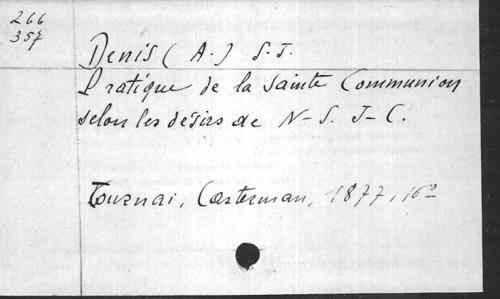 266
357
Denis (A.) S.J.
Pratique de la Sainte Communion
selon les désirs de N-S. J-C.
Tournai, Casterman, 1877, 16°